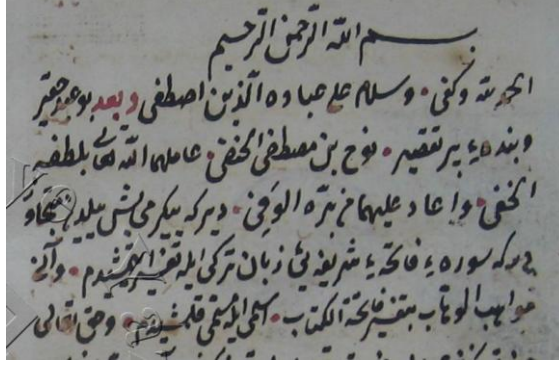 بسم الله الرحمن الرحيم
الحمد لله وكفى • وسلام على عباده الذين اصطفى وبعد بو عبد حقير
وبنده ء پر تقصير • نوح بن مصطفى الحنفى • عاملهما الله تعالى بلطفه
الخفى • واعاد عليهما من بره الوفى • دير كه بيكرمى بش
دركه سوره ء فاتحه ء شريفه يى زبان تركى ايله تفسير ايتمشيدم • وآنى
مواهب الوهاب بتفسير فاتحة الكتاب • اسمى ايله مسمى قلمشيدم • وحق تعالى